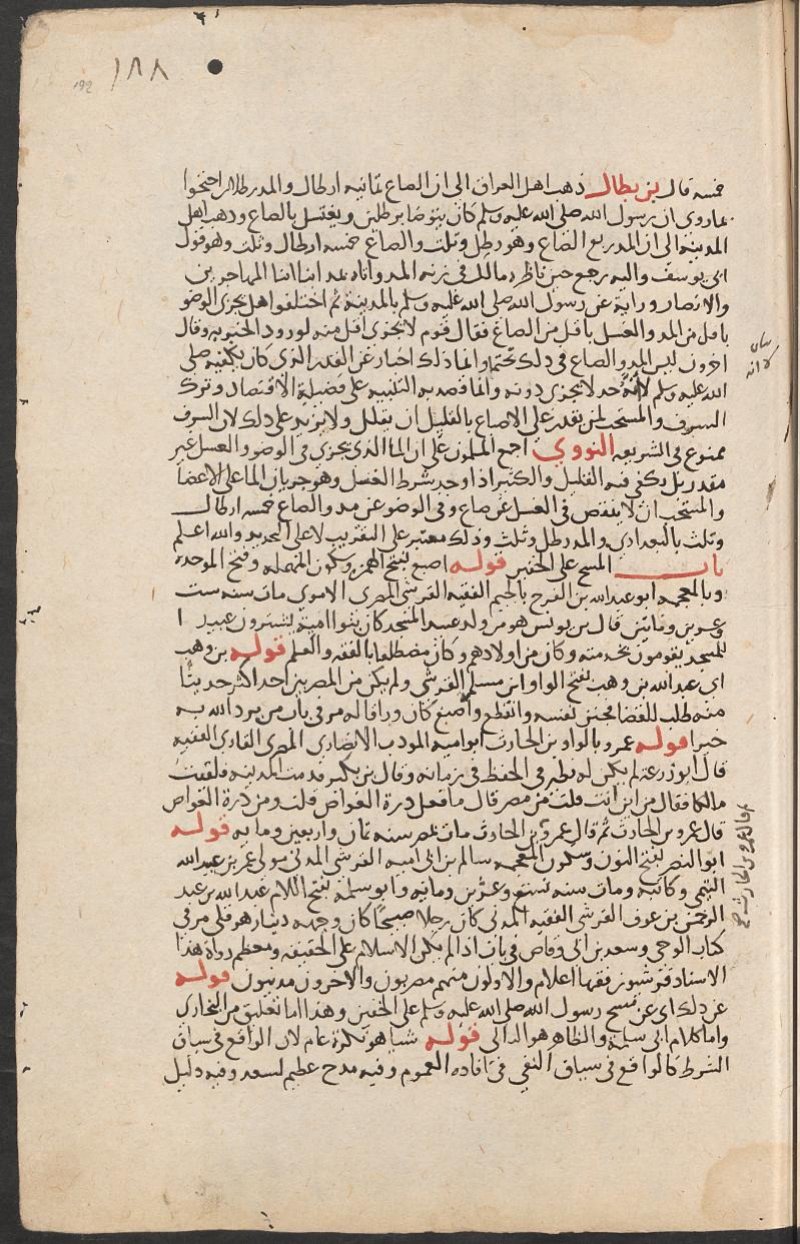 ١٨٨
192
خمسة قال بن بطال ذهب اهل العراق الى ان الصاع ثمانية ارطال والمد رطلان احتجوا
بماروى ان رسول الله صلى الله عليه وسلم كان يتوضا برطلين ويغتسل بالصاع وذهب اهل
المدينة الى ان المد ربع الصاع وهو رطل وثلث والصاع خمسة ارطال وثلث وهو قول
ابى يوسف واليه رجع حين ناظره مالك فى زنة المد واتاه بمد ابنا المهاجرين
والانصار وراثة عن رسول الله صلى الله عليه وسلم بالمدينة ثم اختلفوا هل يجزى الوضو
باقل من المد والغسل باقل من الصاع فقال قوم لا يجزى اقل منه لورود الخبر به وقال
اخرون ليس المد والصاع فى ذلك بحتم وانما ذلك اخبار عن القدر الذى كان يكفيه صلى
الله عليه وسلم لا انه حد لا يجزى دونه وانما قصد به التنبيه على فضيلة الاقتصاد وترك
السرف والمستحب لمن يقدر على الاسباغ بالقليل ان يقلل ولا يزيد على ذلك لان السرف
ممنوع فى الشريعة النووي اجمع المسلمون على ان الما الذى يجزى فى الوضو والغسل غير
مقدر بل يكفى فيه القليل والكثير اذا وجد شرط الغسل وهو جريان الما على الاعضا
والمستحب ان لا ينقص فى الغسل عن صاع وفى الوضو عن مد والصاع خمسة ارطال
وثلث بالبغدادى والمد رطل وثلث وذلك معتبر على التقريب لا على التحديد والله اعلم
باب المسح على الخفين قوله اصبغ بفتح الهمزة وسكون المهملة وفتح الموحدة
وبالمعجمة ابو عبدالله بن الفرج بالجيم الفقيه القرشى المصرى الاموى مات سنة ست
وعشرين ومايتين قال بن يونس هو من ولد عبيد المسجد كان بنوا امية يشترون عبيدا
للمسجد يقومون بخدمته وكان من اولادهم وكان مضطلعا بالفقه والعلم قوله بن وهب
اى عبدالله بن وهب بفتح الواو ابن مسلم القرشى ولم يكن من المصريين احد اكثر حديثا
منه طلب للقضا فجنن نفسه وانقطع واصبغ كان وراقا له مر فى باب من يرد الله به
خيرا قوله عمرو بالواو بن الحارث ابو امية المودب الانصارى المصرى القارى الفقيه
قال ابو زرعة لم يكن له نظير فى الحفظ فى زمانه وقال بن بكير قدمت المدينة فلقيت
مالكا فقال من اين انت قلت من مصر قال ما فعل درة الغواص قلت ومن درة الغواص
قال عمرو بن الحارث ثم قال عمرو بن الحارث مات بمصر سنة ثمان واربعين وماية قوله
ابو النضر بفتح النون وسكون المعجمة سالم بن ابى امية القرشى المدنى مولى عمر بن عبيد الله
التيمى وكاتبه ومات سنة تسع وعشرين وماية وابو سلمة بفتح اللام عبد الله بن عبد
الرحمن بن عوف القرشى الفقيه المدنى كان رجلا صبيحا كان وجهه دينار هرقلى مر فى
كتاب الوحى وسعد بن ابى وقاص فى باب اذا لم يكن الاسلام على الحقيقة ومعظم رواة هذا
الاسناد قرشيون فقها اعلام والاولون منهم مصريون والاخرون مدنيون قوله
عن ذلك اى عن مسح رسول الله صلى الله عليه وسلم على الخفين وهذا اما تعليق من البخارى
واما كلام ابى سلمة والظاهر هو الثانى قوله شيا هو نكرة عام لان الواقع فى سياق
الشرط كالواقع فى سياق النفى فى افادة العموم وفيه مدح عظيم لسعد وفيه دليل
بيان
لا انه